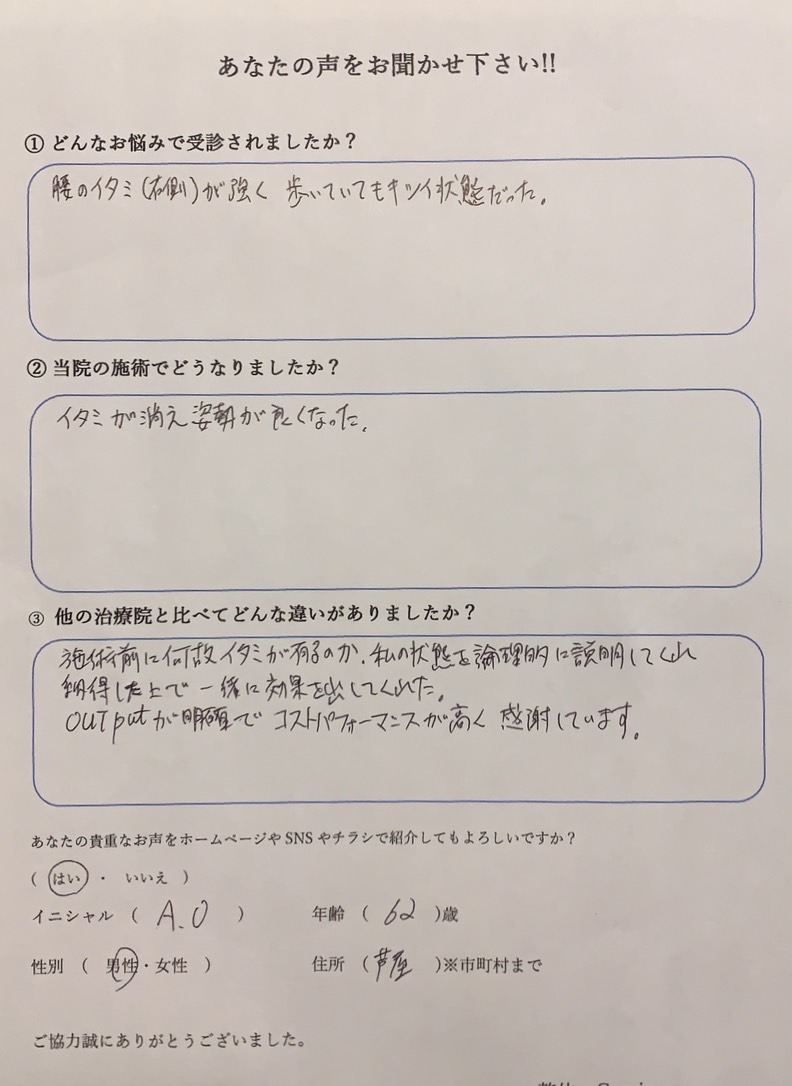 あなたの声をお聞かせ下さい!!
① どんなお悩みで受診されましたか？
腰のイタミ(右側)が強く 歩いていてもキツイ状態だった。
② 当院の施術でどうなりましたか？
イタミが消え姿勢が良くなった。
③ 他の治療院と比べてどんな違いがありましたか？
施術前に何故イタミが有るのか、私の状態を論理的に説明してくれ
納得した上で一緒に効果を出してくれた。
OUTputが明確で コストパフォーマンスが高く 感謝しています。
あなたの貴重なお声をホームページやSNSやチラシで紹介してもよろしいですか？
( はい ・ いいえ )
イニシャル ( A.O ) 年齢 ( 62 )歳
性別 ( 男性・女性 ) 住所 ( 芦屋 )※市町村まで
ご協力誠にありがとうございました。